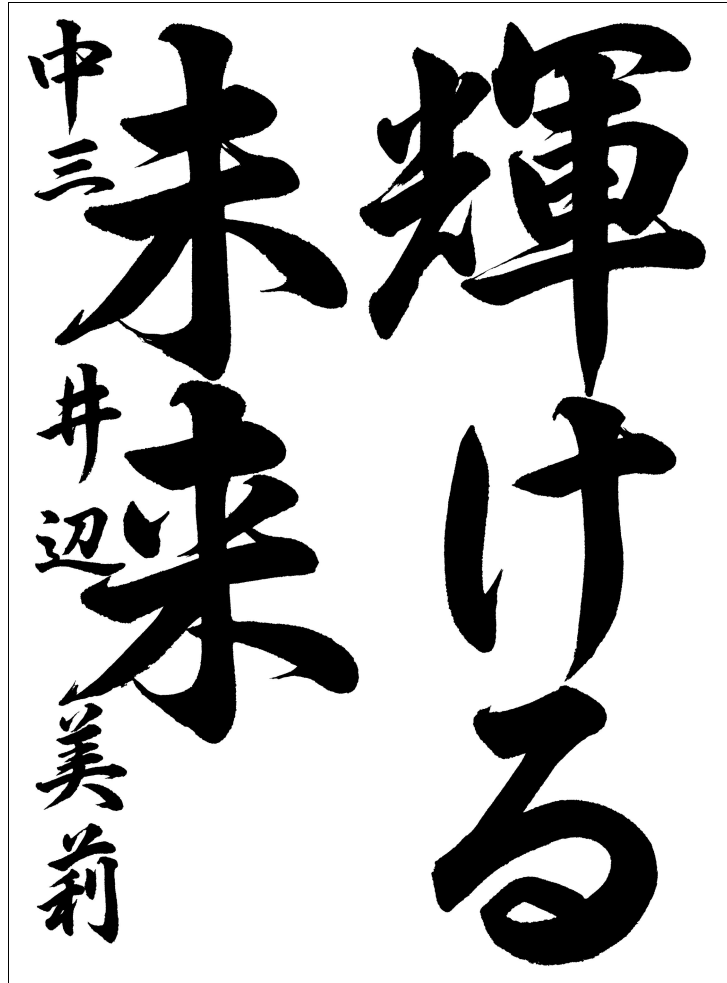 輝ける
未来
中三 井辺 美莉